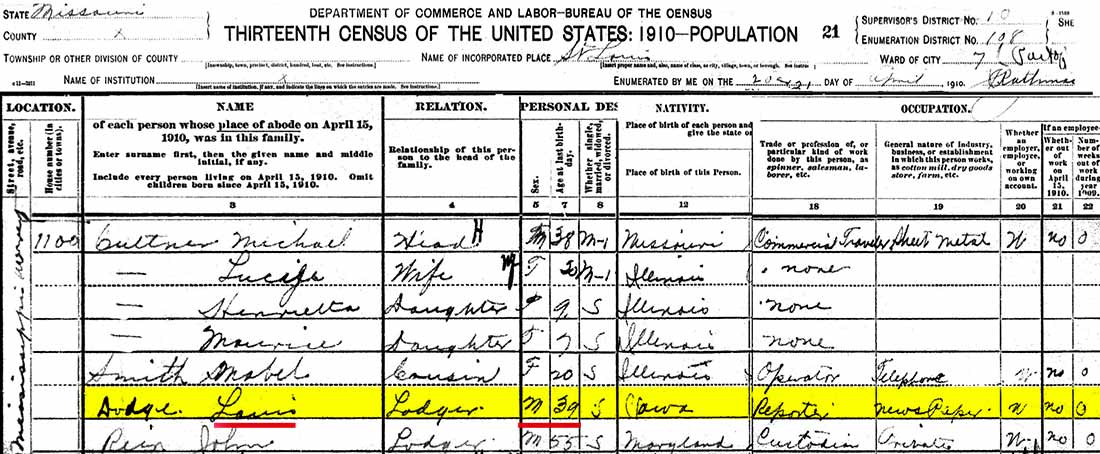 STATE Missouri
COUNTY x
DEPARTMENT OF COMMERCE AND LABOR—BUREAU OF THE CENSUS
THIRTEENTH CENSUS OF THE UNITED STATES: 1910—POPULATION
21
SUPERVISOR'S DISTRICT NO. 10
SHE
ENUMERATION DISTRICT NO. 108
TOWNSHIP OR OTHER DIVISION OF COUNTY
[Insert township, town, precinct, district, hundred, beat, etc. See instructions.]
NAME OF INCORPORATED PLACE St Louis
WARD OF CITY 7 (Part of)
NAME OF INSTITUTION x
[Insert name of institution, if any, and indicate the lines on which the entries are made. See instructions.]
ENUMERATED BY ME ON THE 20 & 21 DAY OF April 1910.
LOCATION. NAME RELATION. PERSONAL DES NATIVITY. OCCUPATION.
Street, avenue, road, etc.
House number (in cities or towns).
of each person whose place of abode on April 15, 1910, was in this family.
Enter surname first, then the given name and middle initial, if any.
Include every person living on April 15, 1910. Omit children born since April 15, 1910.
Relationship of this person to the head of the family.
Sex.
Age at last birthday.
Whether single, married, widowed, or divorced.
Place of birth of each person and
give the state or
Place of birth of this Person.
Trade or profession of, or particular kind of work done by this person, as spinner, salesman, laborer, etc.
General nature of industry, business, or establishment in which this person works, as cotton mill, dry goods store, farm, etc.
Whether an employer, employee, or working on own account.
If an employee—
Whether out of work on April 15, 1910.
Number of weeks out of work during year 1909.
3 4 5 7 8 12 18 19 20 21 22
Mississippi
1100 Michael Head H M 38 M-1 Missouri Commercial Traveler Sheet Metal W no 0
— Wife F 30 M-1 Illinois none
— Henrietta Daughter F 9 S Illinois none
— Maurice Daughter F 7 S Illinois none
Smith Mabel Cousin F 20 S Illinois Operator Telephone W no 0
Dodge Louis Lodger M 39 S Iowa Reporter news Paper W no 0
John Lodger M 55 S Maryland Custodian Private W no 0